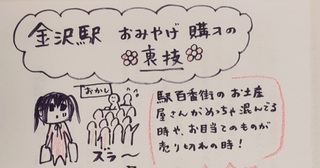 金沢駅 おみやげ 購入の
裏技
おかし
ズラ〜
駅百番街の お土産
屋さんがめっちゃ混んでる
時や、お目当てのものが
売り切れの時!